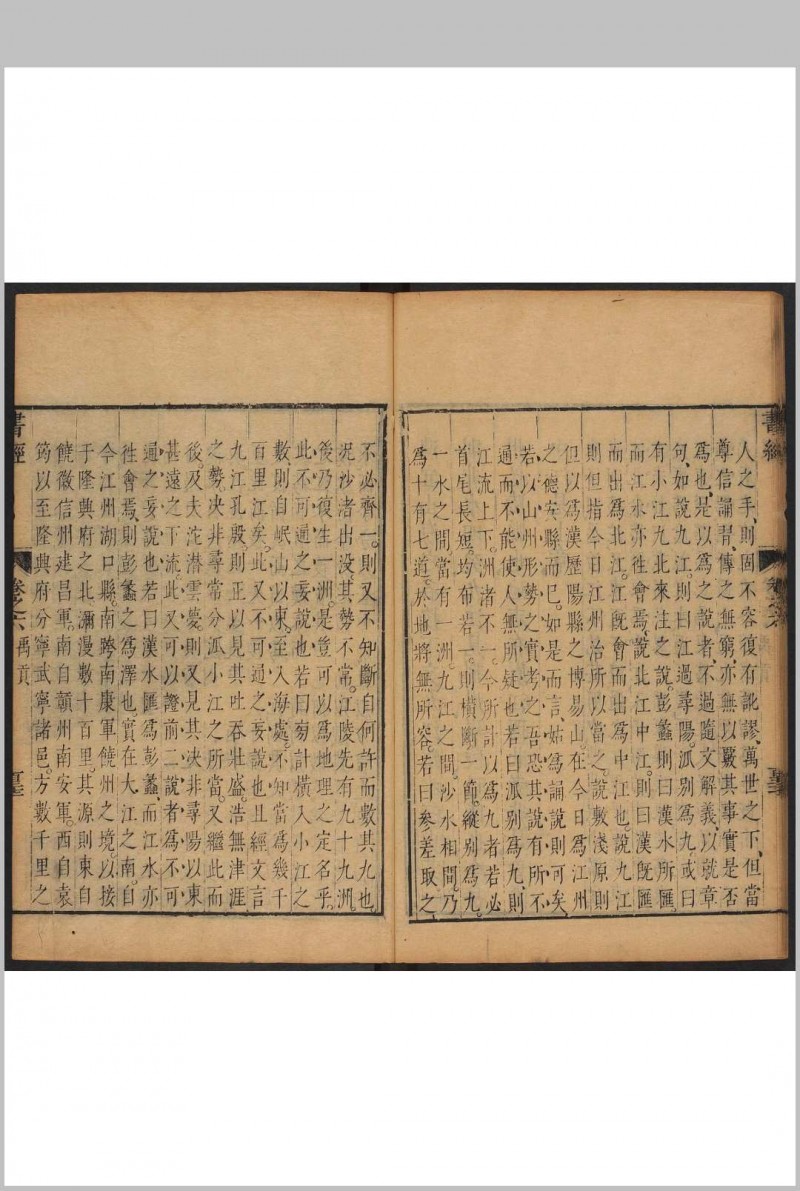 人之手、則固不容復有訛謬、萬世之下、但當
尊信誦習、傳之無窮、亦無以覈其事實是否
爲也。是以爲之說者、不過隨文解義、以就章
句。如說九江、則曰江過尋陽、派別爲九、或曰
有小江九北來注之。說彭蠡、則曰漢水所匯、
而江水亦徃會焉。說北江中江、則曰漢旣匯
而出爲北江、江旣會而出爲中江也。說九江
則但指今日江州治所以當之。說敷淺原則
但以爲漢歷陽縣之博昜山、在今日爲江州
之德安縣而巳。如是而言、姑爲誦說則可矣、
若以山州形勢之實考之、吾恐其說有所不
通而不能使人無所疑也。若曰派別爲九、則
江流上下、洲渚不一、今所計以爲九者、若必
首尾長短、均布若一、則橫斷一節、縱別爲九、
一水之間、當有一洲、九江之間、沙水相間、乃
爲十有七道、於地將無所容。若曰參差取之、
不必齊一、則又不知斷自何許而數其九也。
況沙渚出没、其勢不常。江陵先有九十九洲。
後乃復生一洲。是豈可以爲地理之定名乎。
此不可通之妄說也。若曰旁計橫入小江之
數、則自岷山以東、至入海處、不知當爲幾千
百里江矣。此又不可通之妄說也。且經文言
九江孔殷、則正以見其吞吐壯盛、浩無津涯
之勢。決非尋常分派小江之所當。又繼此而
後及夫沱潛雲夢、則又見其決非尋陽以東
甚遠之下流。此又可以證前二說者爲不可
通之妄說也。若曰漢水匯爲彭蠡、而江水亦
徃會焉、則彭蠡之爲澤也、實在大江之南、自
今江州湖口縣、南跨南康軍饒州之境、以接
于隆興府之北、瀰漫數十百里、其源則東自
饒徽信州建昌軍、南自贛州南安軍、西自袁
筠以至隆興府分寧武寧諸邑、方數千里之
書經
卷之六
禹貢